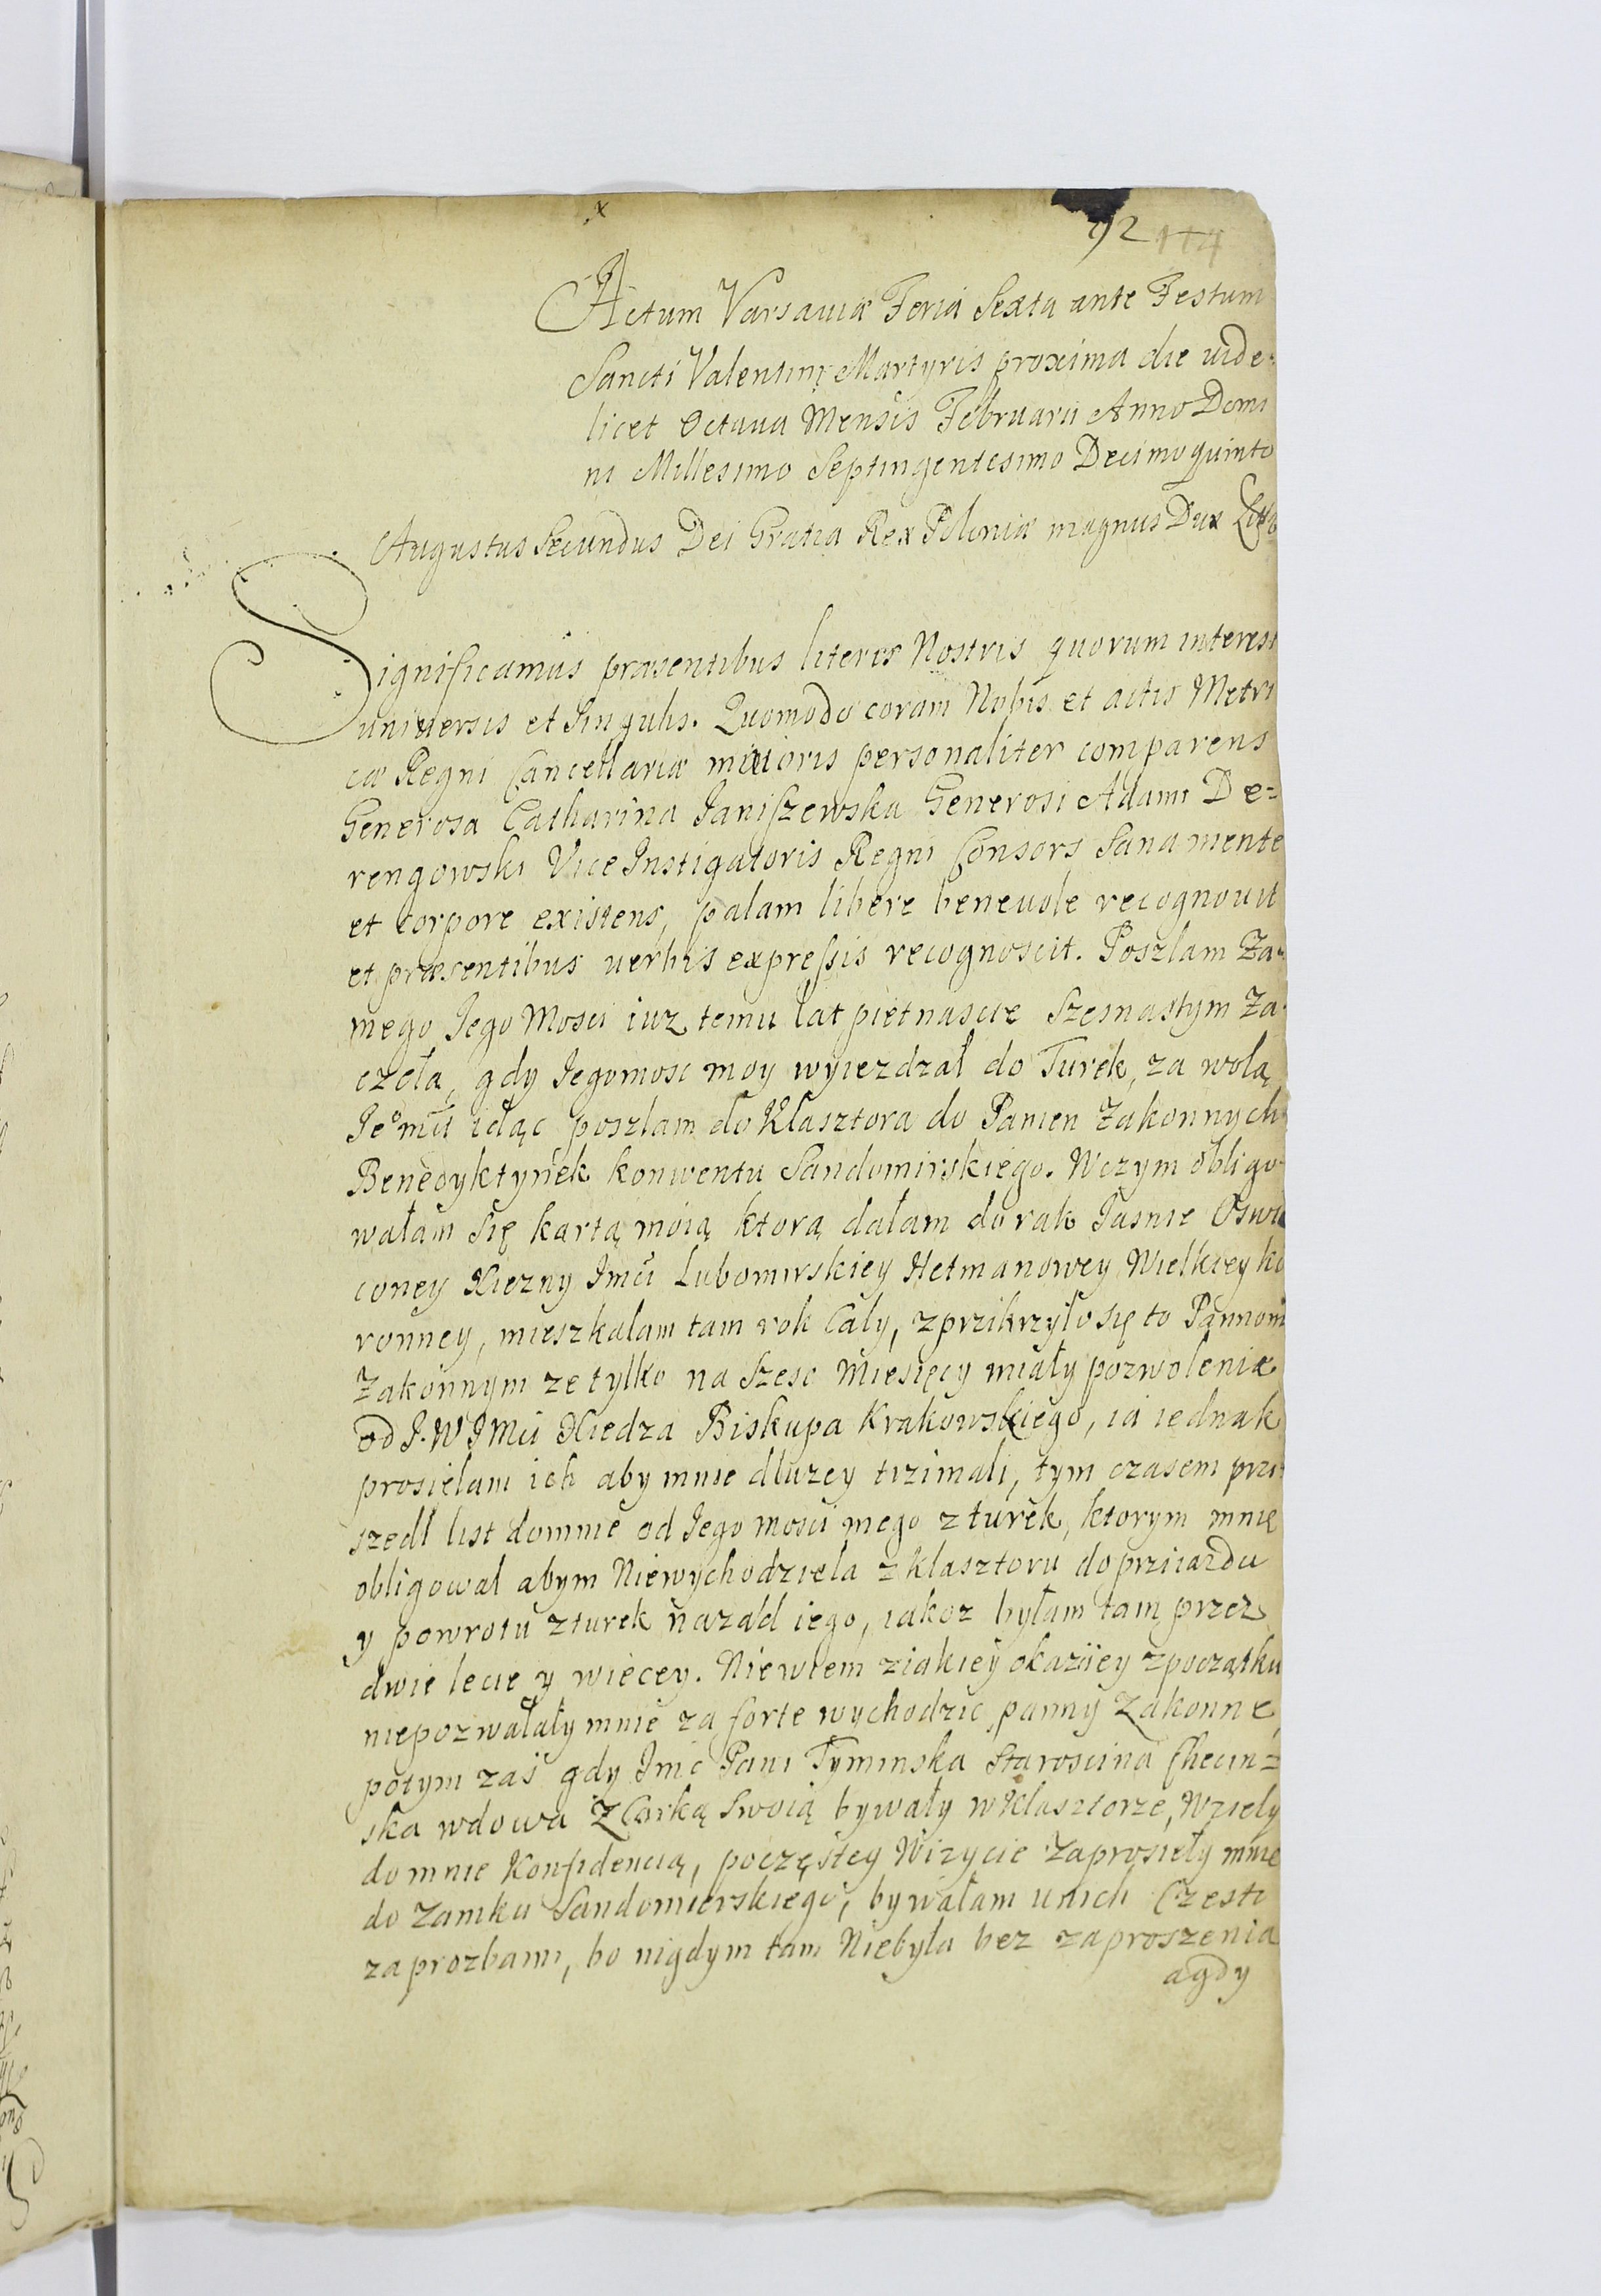 x
92 114
Actum Varsaviæ Feria Sexta ante Festum
Sancti Valentini Martyris proxima die uide-
licet Octaua Mensis Februarii Anno Domi
ni Millesimo Septingentesimo Decimo quinto
Augustus Secundus Dei Gratia Rex Poloniæ magnus Dux
Significamus præsentibus literis Nostris quorum interest
uniuersis et Singulis. Quomodo coram Nobis et actis Metri
cæ Regni Cancellariæ minoris personaliter comparens
Generosa Catharina Janiszewska Generosi Adami De=
rengowski Vice Instigatoris Regni Consors Sana mente
et corpore existens, palam libere beneuole recognouit
et præsentibus uerbis expressis recognoscit. Poszlam Za-
mego Jego Mosci iuz temu lat pietnascie Szesnastym Za-
czeła, gdy Jegomosc moy wyiezdzał do Turek, za wolą
Jeo mci idąc poszlam do Klasztora do Panien Zakonnych
Benedyktynek konwentu Sandomirskiego. Wczym obligo-
wałam się kartą moią ktorą dałam do rąk Jasnie Oswie
coney Xiezny Jmci Lubomirskiey Hetmanowey Wielkiey ko
ronney, mieszkalam tam rok Cały, zprzikrzylo się to Pannom
Zakonnym ze tylko na Szesc Miesięcy miały pozwolenie
od J.W JMci Xiedza Biskupa Krakowskiego, ia iednak
prosielam ich aby mnie dłuzey trzimali, tym czasem przi-
szedł list domnie od Jego mosci mego z turek, ktorym mnię
obligował abym Niewychodziela z klasztoru do prziiazdu
y powrotu z turek nazad iego, iakoz byłam tam przez
dwie lecie y wiecey. Niewiem ziakiey okaziiey zpoczątku
niepozwałały mnie za forte wychodzic panny Zakonne,
potym zas gdy Jmc Pani Tyminska Staroscina Checin=
ska wdowa Z Corką Swoią bywały w Klasztorze, Wzieły
do mnie Konfidencią, poczęstey Wizycie Zaprosieły mnie
do Zamku Sandomierskiego, bywałam unich Czesto
zaprozbami, bo nigdym tam Niebyła bez zaproszenia
agdy